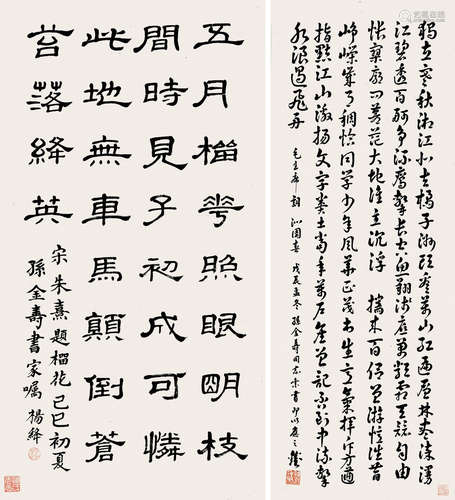 獨立寒秋湘江北去橘子洲頭看萬山紅遍層林盡染漫
江碧透百舸爭流鷹擊長空魚翔淺底萬類霜天競自由
悵寥廓問蒼茫大地誰主沉浮 攜來百侶曾遊憶往昔
崢嶸歲月稠恰同學少年風華正茂書生意氣揮斥方遒
指點江山激揚文字糞土當年萬戶侯曾記否到中流擊
水浪遏飛舟 毛主席詞 沁園春 戊辰孟冬 孫金壽同志索書即以應之
五月榴華照眼明枝
間時見子初成可憐
此地無車馬顛倒蒼
苔落絳英
宋朱熹題榴花 己巳初夏
孫金壽書家囑 楊絳